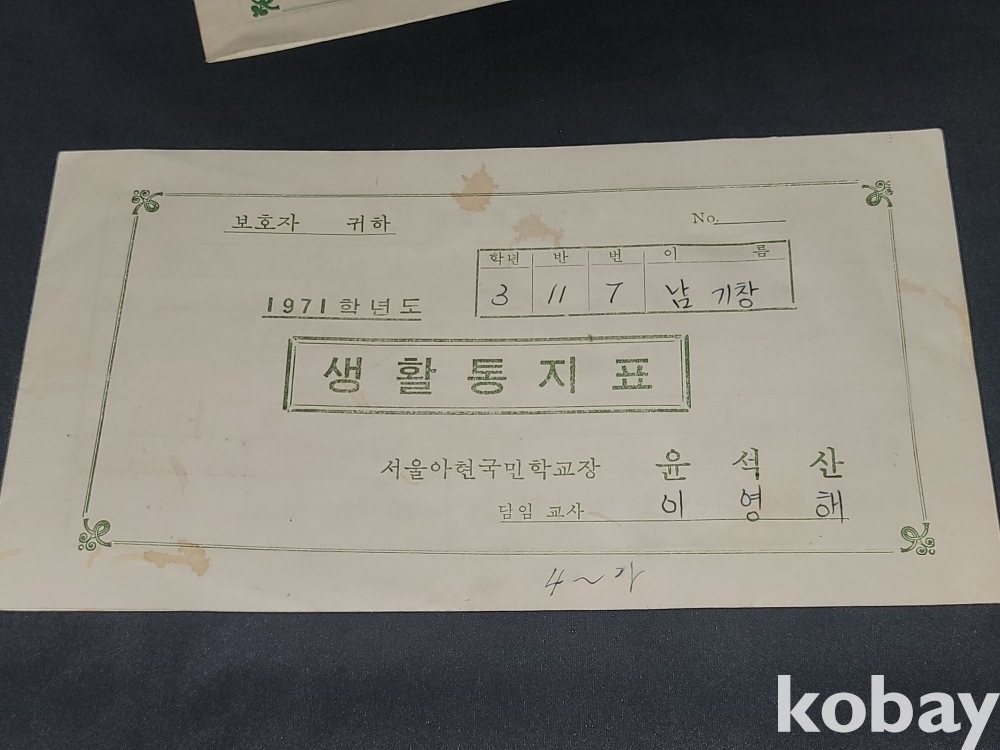 보호자 귀하
No.
학년 반 번 이름
3 11 7 남기창
1971학년도
생활통지표
서울아현국민학교장 윤석산
담임 교사 이영해
kobay